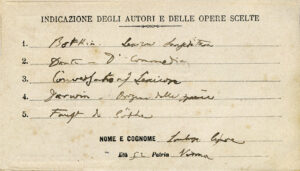 INDICAZIONE DEGLI AUTORI E DELLE OPERE SCELTE
1.
2. Dante - Dª Commedia
3. Conversations Lexicon
4. Darwin - Origine delle specie
5. Faust di Göthe
NOME E COGNOME
Età 52 Patria Verona